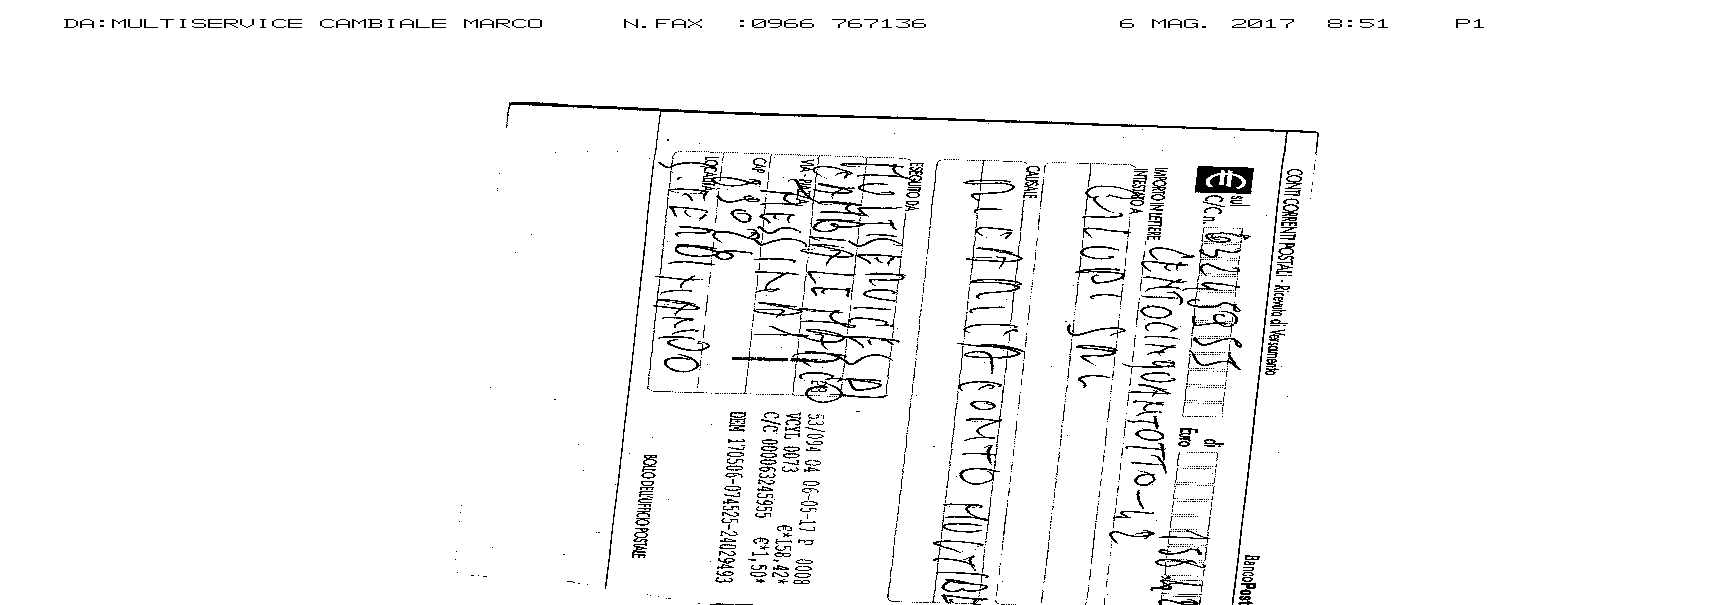 DA:MULTISERVICE CAMBIALE MARCO N.FAX :0966 767136 6 MAG. 2017 8:51 P1
CONTI CORRENTI POSTALI - Ricevuta di Versamento
BancoPost
sul C/C n. 63245955 di Euro 158,42
IMPORTO IN LETTERE CENTOCINQUANTOTTO-42
INTESTATO A
SRL
CAUSALE
RICARICA CONTO
ESEGUITO DA
MULTISERVICES D
CAMBIALE MARCO
VIA - PIAZZA MESSINA 
CAP 89026
LOCALITÀ S. FERDINANDO
53/094 04 06-05-17 P 0008
VCYL 0073 €*158,42*
C/C 000063245955 €*1,50*
DEM 170506-074525-24029493
BOLLO DELL'UFFICIO POSTALE